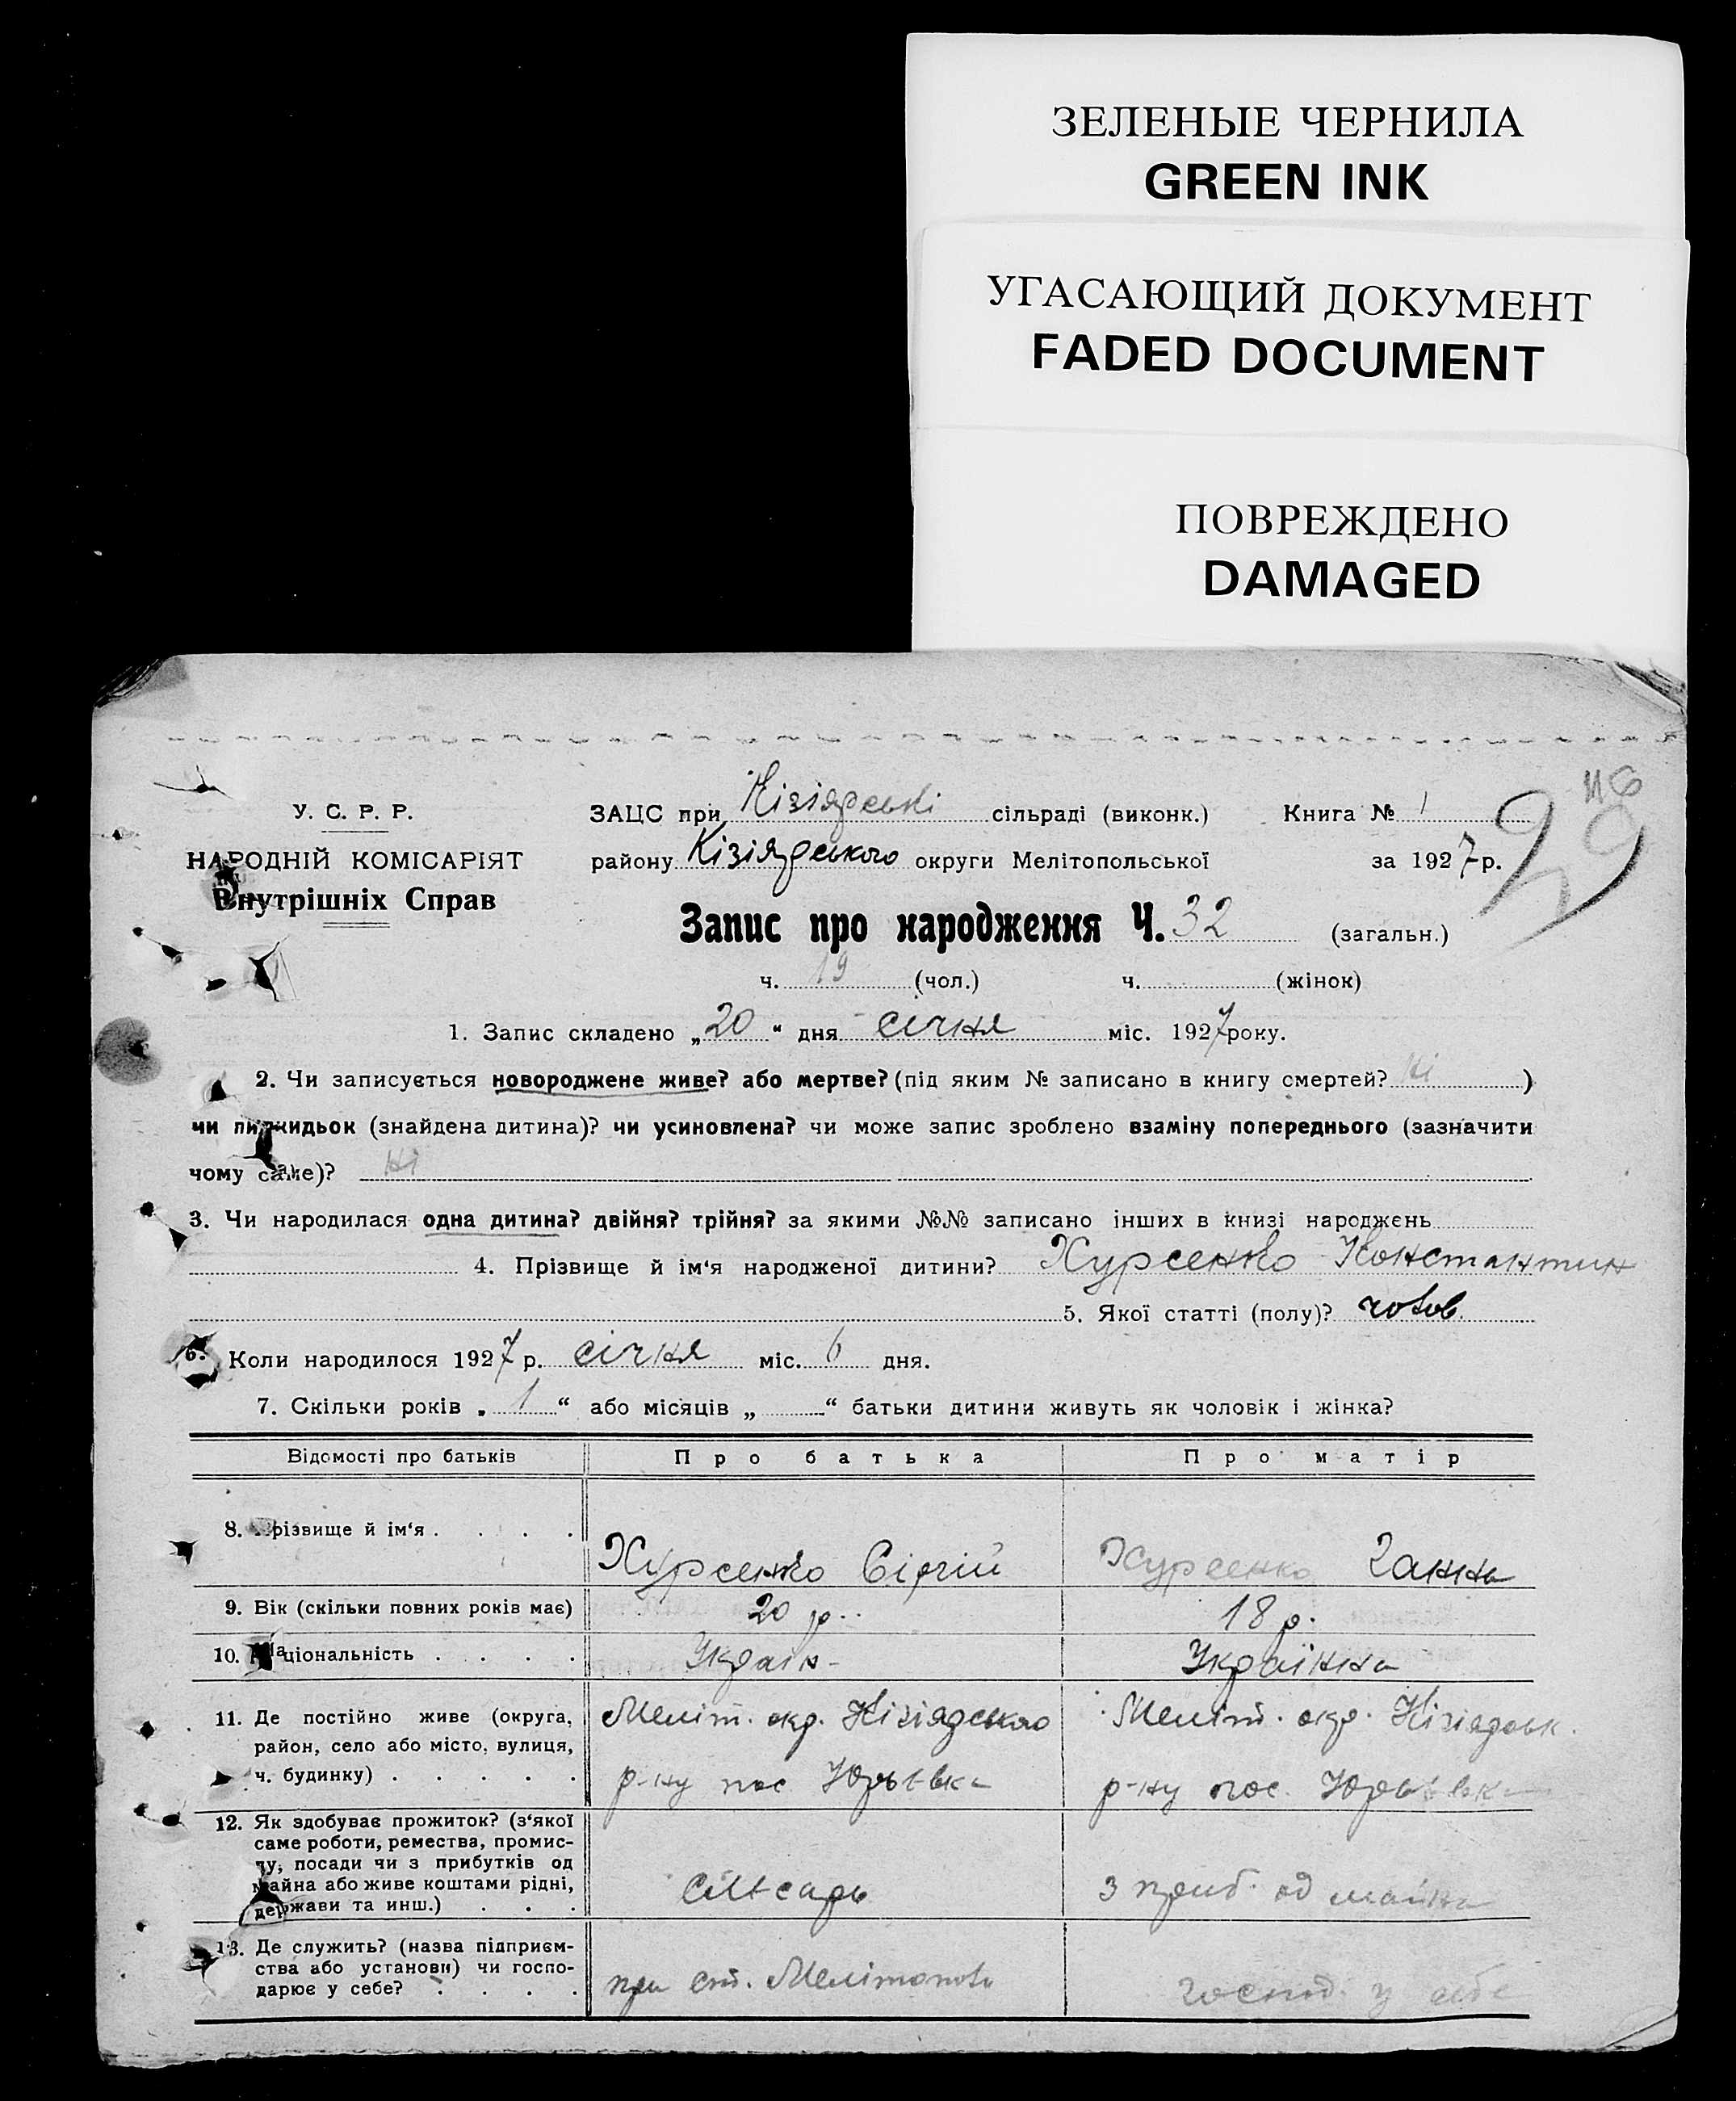 ЗЕЛЕНЫЕ ЧЕРНИЛА
GREEN INK
УГАСАЮЩИЙ ДОКУМЕНТ
FADED DOCUMENT
ПОВРЕЖДЕНО
DAMAGED
У. С. Р. Р.
НАРОДНІЙ КОМІСАРІЯТ
Внутрішніх Справ
ЗАЦС при Кізіярські сільраді (виконк.) Книга № 1
району Кізіярського округи Мелітопольської за 1927 р.
Запис про народження Ч. 32 (загальн.)
ч. 19 (чол.) ч. (жінок)
1. Запис складено „20“ дня січня міс. 1927 року.
2. Чи записується новороджене живе? або мертве? (під яким № записано в книгу смертей? ні )
чи підкидьок (знайдена дитина)? чи усиновлена? чи може запис зроблено взаміну попереднього (зазначити
чому саме)? ні
3. Чи народилася одна дитина? двійня? трійня? за якими №№ записано інших в книзі народжень
4. Прізвище й ім'я народженої дитини? Хурсенко Констактин
5. Якої статті (полу)? чолов.
6. Коли народилося 1927 р. січня міс. 6 дня.
7. Скільки років „1“ або місяців „ “ батьки дитини живуть як чоловік і жінка?
Відомості про батьків Про батька Про матір
8. Прізвище й ім'я . . . . Хурсенко Сіргій Хурсенко Ганна
9. Вік (скільки повних років має) 20 р. 18 р.
10. Національність . . . . Україн- Українка
11. Де постійно живе (округа,
район, село або місто, вулиця,
ч. будинку) . . . . .
Меліт. окр. Кізіярського
р-ну пос Юрьівка
Меліт. окр. Кізіярськ.
р-ну пос. Юрьівка
12. Як здобуває прожиток? (з'якої
саме роботи, ремества, промис-
лу, посади чи з прибутків од
майна або живе коштами рідні,
держави та инш.) . . .
Слесарь
з приб. од майна
13. Де служить? (назва підприєм-
ства або установи) чи госпо-
дарює у себе? . . . .
при ст. Мелітополь
господ. у себе